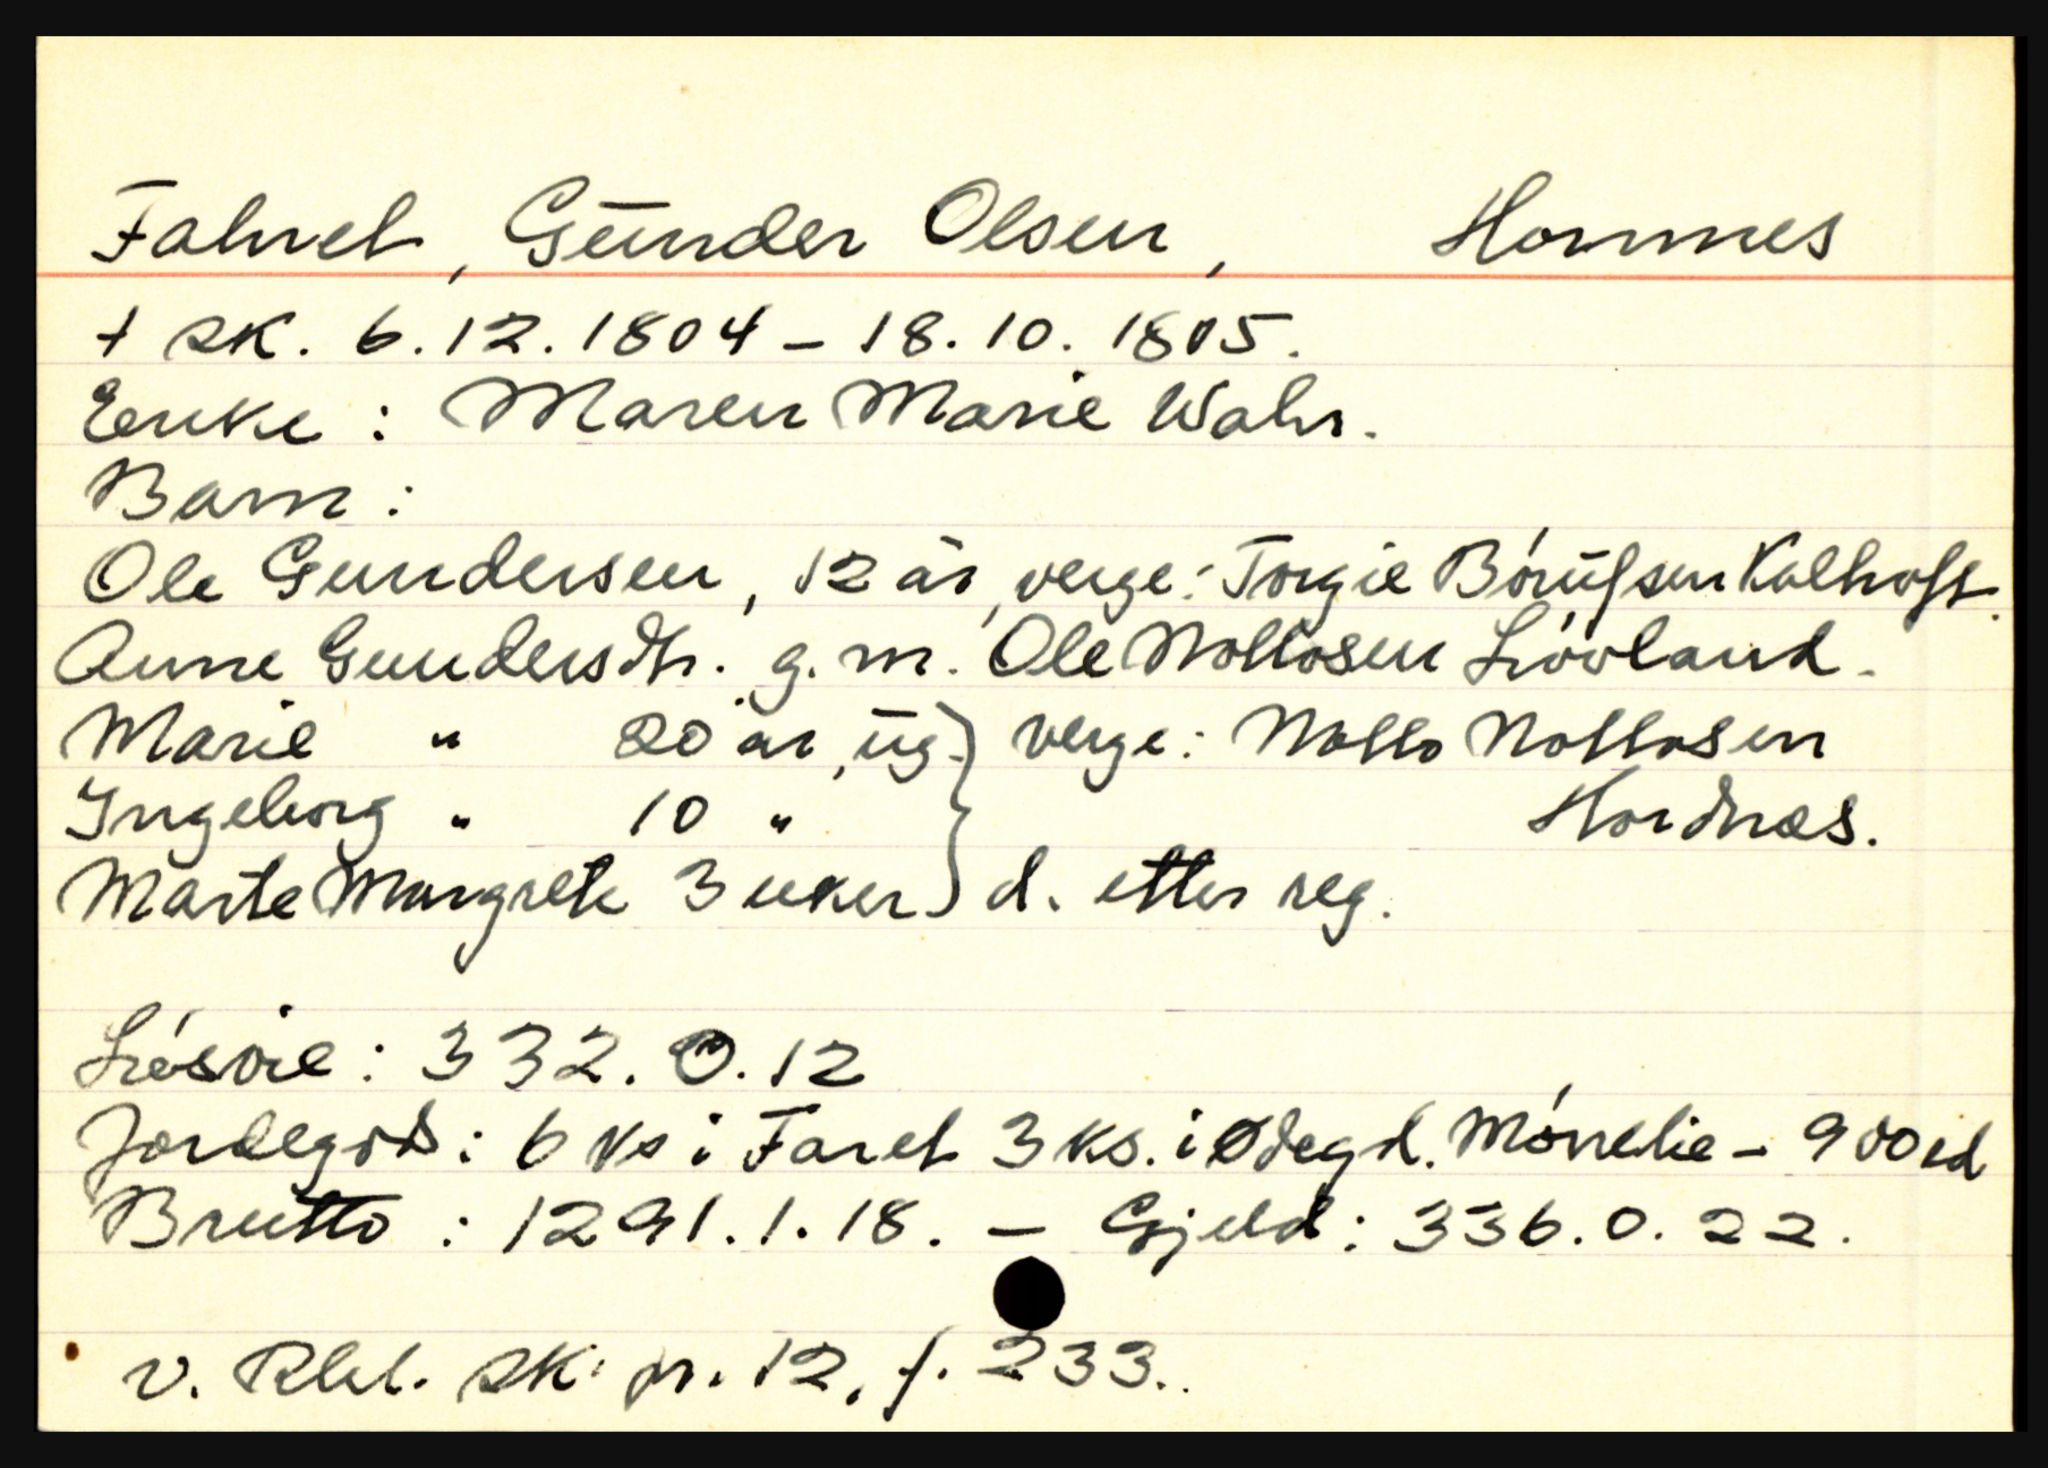 Fahret, Gunder Olsen, Hornnes
† sk. 6.12.1804 – 18.10.1805.
Enke: Maren Marie Wahr.
Barn:
Ole Gundersen, 12 år, verge: Torgie Börufsen Kalhoft.
Anne Gundersdtr. g.m. Ole Nollosen Lóvland.
Marie " 20 år, ug. } verge: Nollo Nollosen
Ingeborg " 10 " Hordnes.
Marte Margrete 3 uker } d. etter reg.
Lósöre: 332.0.12
Jordegods: 6 ks i Faret 3 ks. i Ødegd. Mónelie – 900 rd
Brutto: 1291.1.18. – Gjeld: 336.0.22.
v. Rbl. sk. pr. 12, f. 233.